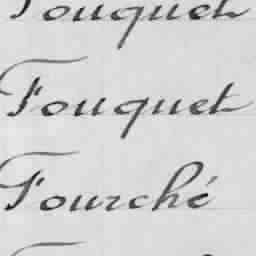 Fouquet
Fouquet
Fourché